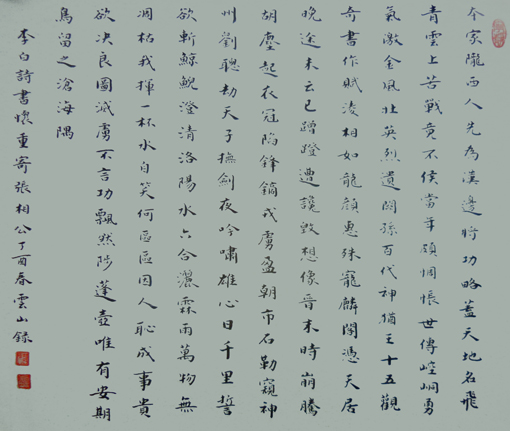 本家隴西人先為漢邊將功略蓋天地名飛
青雲上苦戰竟不侯當年頗惆悵世傳崆峒勇
氣激金風壯英烈遺闕孫百代神猶王十五觀
奇書作賦凌相如龍顏惠殊寵麟閣憑天居
晚途未云已蹭蹬遭讒毀想像晉末時崩騰
胡塵起衣冠陷鋒鏑戎虜盈朝市石勒窺神
州劉聰劫天子撫劍夜吟嘯雄心日千里誓
欲斬鯨鯢澄清洛陽水六合灑霖雨萬物無
凋枯我揮一杯水自笑何區區因人恥成事貴
欲決良圖滅虜不言功飄然陟蓬壺唯有安期
舄留之滄海隅
李白詩書懷重寄張相公丁酉春雲山錄